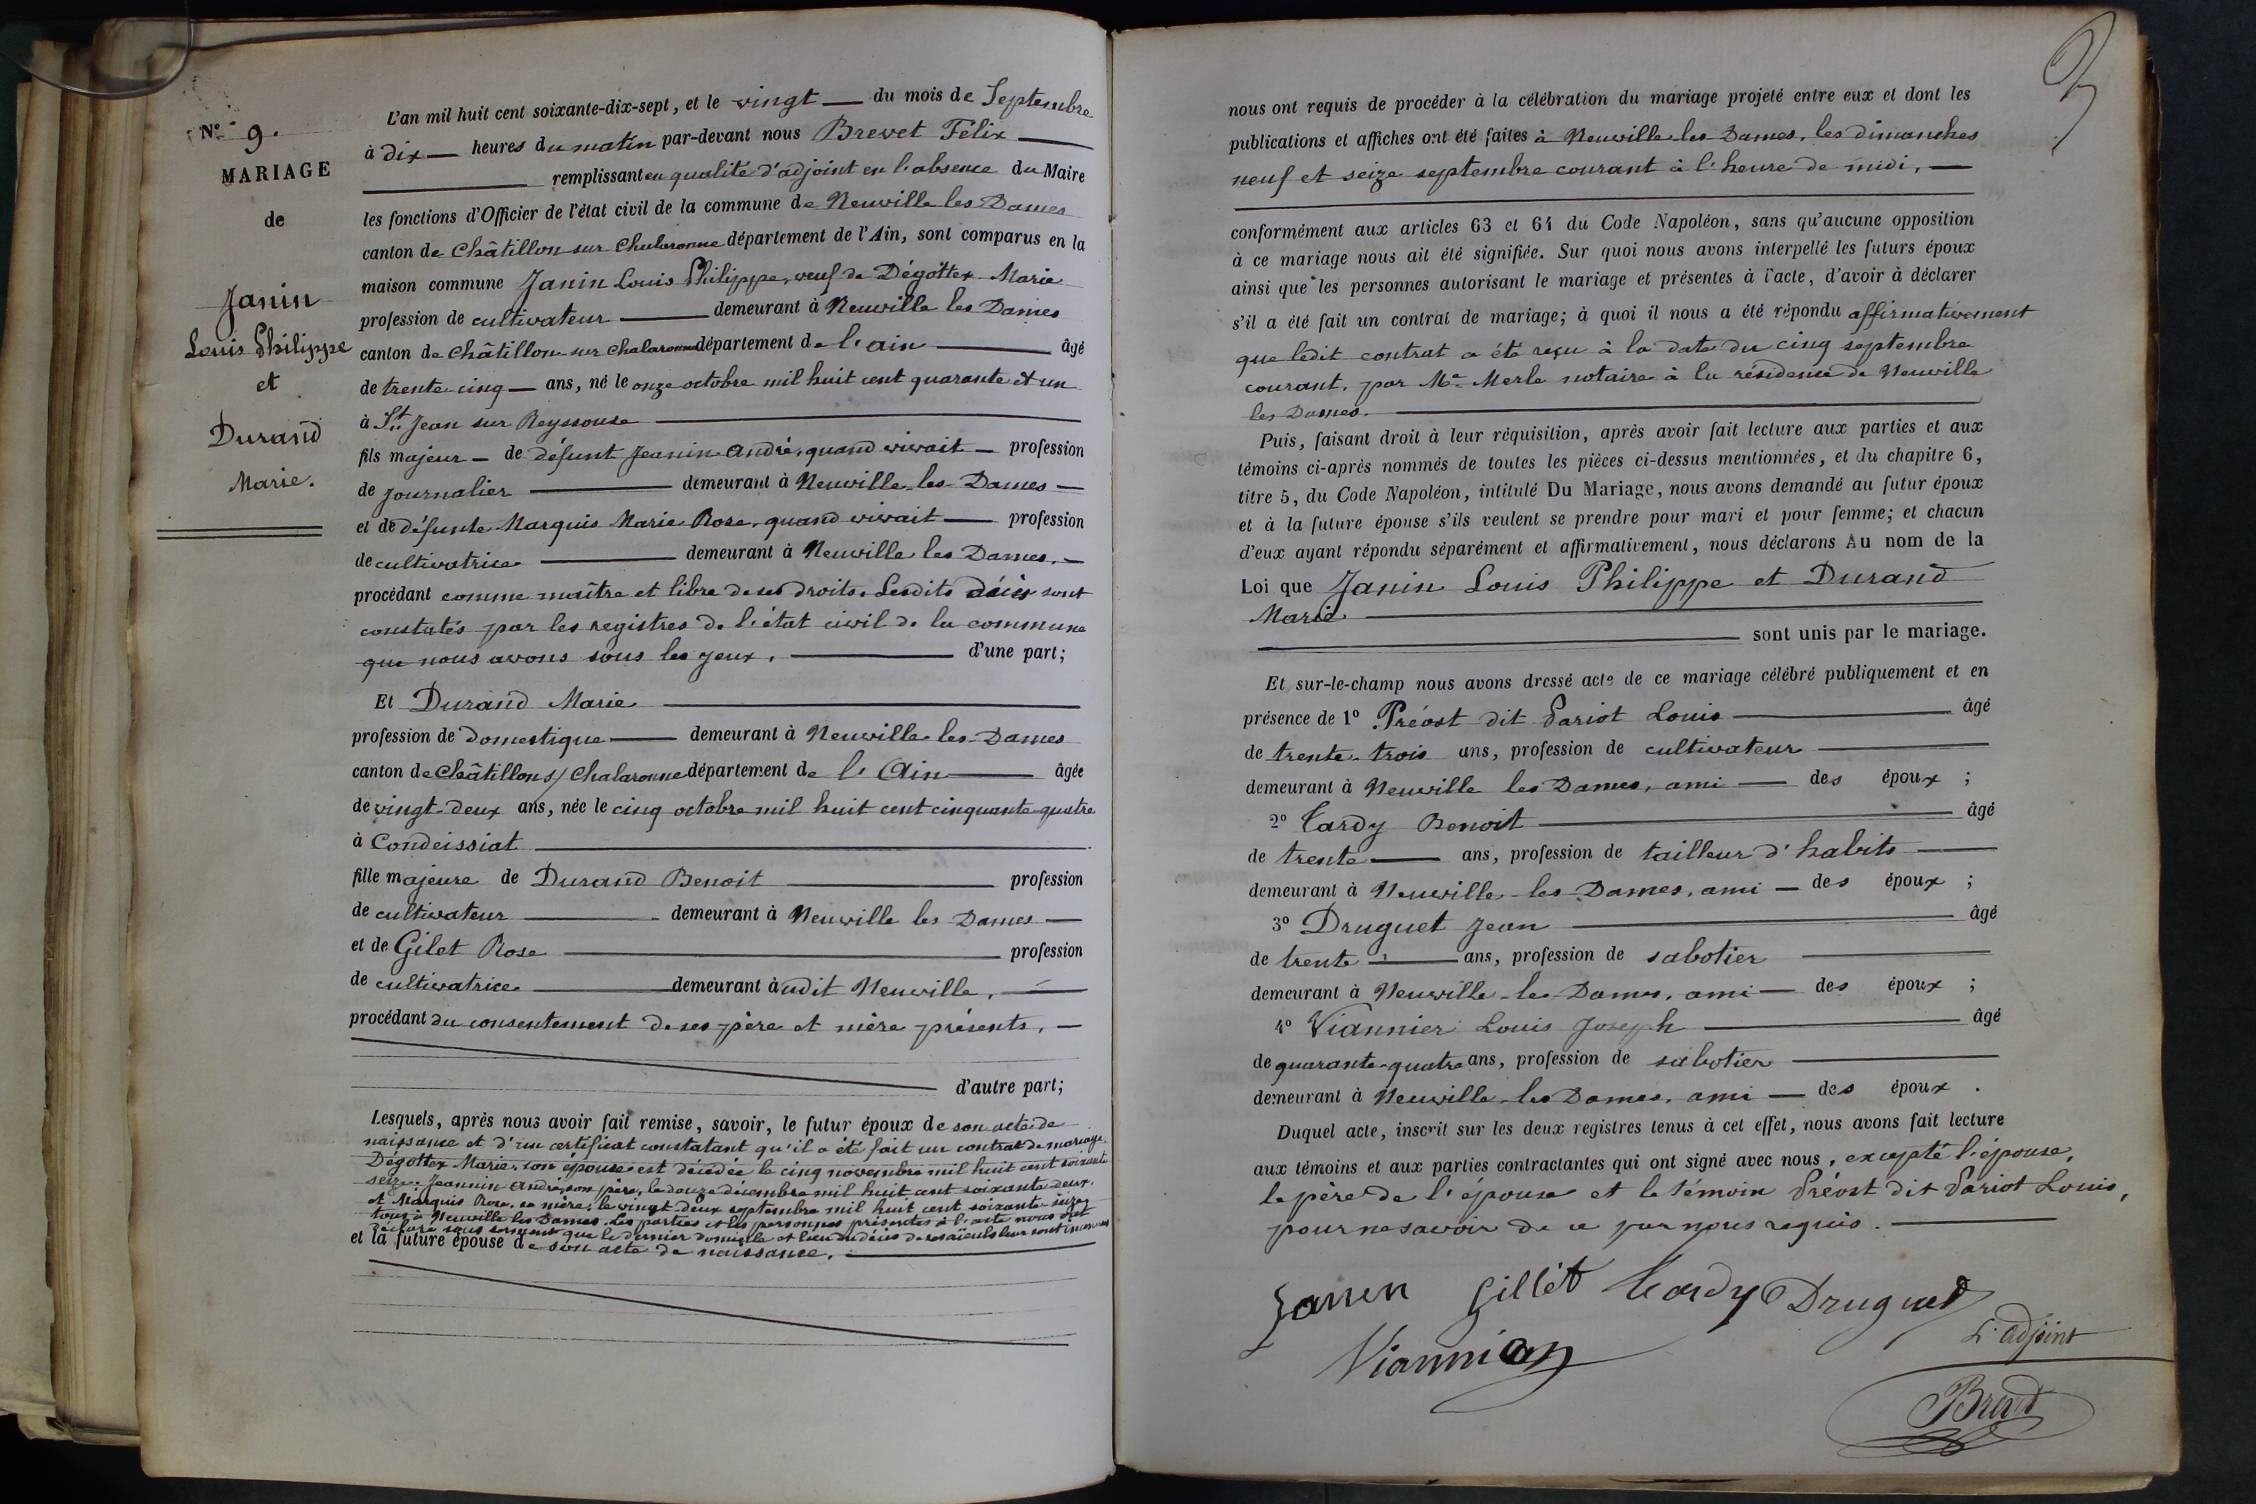 N.º 9.
MARIAGE
de
Janin
Louis Philippe
et
Durand
Marie.
L'an mil huit cent soixante-dix-sept, et le vingt du mois de Septembre
à dix heures du matin par-devant nous Brevet Félix
remplissant en qualité d'adjoint en l'absence du Maire
les fonctions d'Officier de l'état civil de la commune de Neuville les Dames
canton de Châtillon sur Chalaronne département de l'Ain, sont comparus en la
maison commune Janin Louis Philippe, veuf de Dégottex Marie
profession de cultivateur demeurant à Neuville les Dames
canton de Châtillon sur Chalaronne département de l'ain âgé
de trente cinq ans, né le onze octobre mil huit cent quarante et un
à St Jean sur Reyssouse
fils majeur de défunt Jeanin André, quand vivait profession
de journalier demeurant à Neuville-les-Dames
et de défunte Marquis Marie Rose, quand vivait profession
de cultivatrice demeurant à Neuville les Dames.
procédant comme maître et libre de ses droits. Lesdits décès sont
constatés par les registres de l'état civil de la commune
que nous avons sous les yeux. d'une part;
Et Durand Marie
profession de domestique demeurant à Neuville les Dames
canton de Châtillon s/ Chalaronne département de l'Ain âgée
de vingt-deux ans, née le cinq octobre mil huit cent cinquante quatre
à Condeissiat
fille majeure de Durand Benoit profession
de cultivateur demeurant à Neuville les Dames
et de Gilet Rose profession
de cultivatrice demeurant à udit Neuville,
procédant du consentement de ses père et mère présents,
d'autre part;
Lesquels, après nous avoir fait remise, savoir, le futur époux de son acte de
naissance et d'un certificat constatant qu'il a été fait un contrat de mariage.
Dégottex Marie, son épouse est décédée le cinq novembre mil huit cent soixante
seize. Jeannin André, son père, le douze décembre mil huit cent soixante deux.
et Marquis Rose, sa mère, le vingt deux septembre mil huit cent soixante seize,
tous à Neuville les Dames. Les parties et les personnes présentes à l'acte nous ont
déclaré sous serment que le dernier domicile et lieu du décès de ses aïeuls leur sont inconnus
et la future épouse de son acte de naissance.
nous ont requis de procéder à la célébration du mariage projeté entre eux et dont les
publications et affiches ont été faites à Neuville les Dames, les dimanches
neuf et seize septembre courant à l'heure de midi,
conformément aux articles 63 et 64 du Code Napoléon, sans qu'aucune opposition
à ce mariage nous ait été signifiée. Sur quoi nous avons interpellé les futurs époux
ainsi que les personnes autorisant le mariage et présentes à l'acte, d'avoir à déclarer
s'il a été fait un contrat de mariage; à quoi il nous a été répondu affirmativement
que ledit contrat a été reçu à la date du cinq septembre
courant, par Me Merle notaire à la résidence de Neuville
les Dames.
Puis, faisant droit à leur réquisition, après avoir fait lecture aux parties et aux
témoins ci-après nommés de toutes les pièces ci-dessus mentionnées, et du chapitre 6,
titre 5, du Code Napoléon, intitulé Du Mariage, nous avons demandé au futur époux
et à la future épouse s'ils veulent se prendre pour mari et pour femme; et chacun
d'eux ayant répondu séparément et affirmativement, nous déclarons Au nom de la
Loi que Janin Louis Philippe et Durand
Marie
sont unis par le mariage.
Et sur-le-champ nous avons dressé acte de ce mariage célébré publiquement et en
présence de 1º Préost dit Pariot Louis âgé
de trente-trois ans, profession de cultivateur
demeurant à Neuville les Dames, ami des époux ;
2º Tardy Benoit âgé
de trente ans, profession de tailleur d'habits
demeurant à Neuville les Dames, ami des époux ;
3º Druguet Jean âgé
de trente ans, profession de sabotier
demeurant à Neuville-les-Dames, ami des époux ;
4º Viannier Louis Joseph âgé
de quarante-quatre ans, profession de sabotier
demeurant à Neuville-les Dames, ami des époux .
Duquel acte, inscrit sur les deux registres tenus à cet effet, nous avons fait lecture
aux témoins et aux parties contractantes qui ont signé avec nous, excepté l'épouse,
le père de l'épouse et le témoin Préost dit Pariot Louis,
pour ne savoir de ce par nous requis.
Janin Gillét Tardy Druguet
L'adjoint
Viannier
Brevet